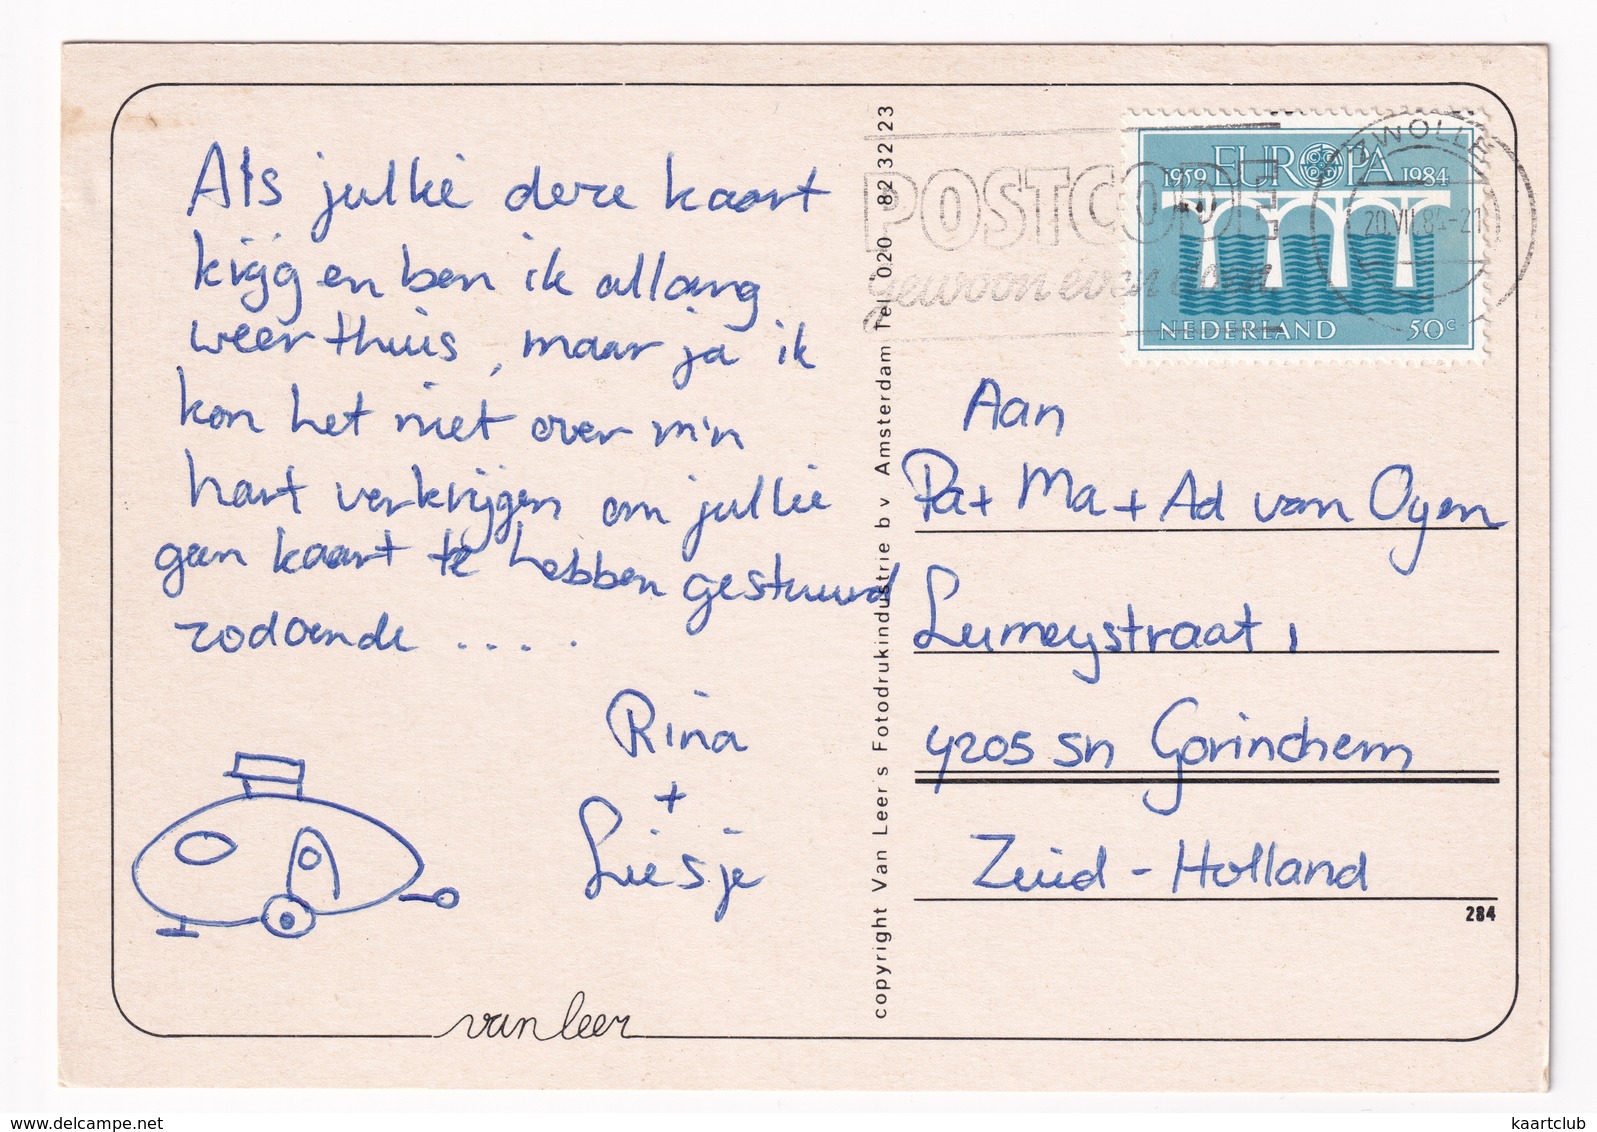 Als jullie deze kaart
krijg en ben ik allang
weer thuis, maar ja ik
kon het niet over m'n
hart verkrijgen om jullie
geen kaart te hebben gestuurd
zodoende .....
Rina
+
Liesje
van leer
copyright Van Leer s Fotodrukindustrie b v Amsterdam Tel 020 82 32 23
POSTCODE
gewoon even doen
ZWOLLE
20.VII.84-21
1959 EUROPA 1984
NEDERLAND 50c
Aan
Pa + Ma + Ad van Ogen
Lumeystraat 1
4205 SN Gorinchem
Zuid - Holland
284
www.delcampe.net
kaartclub